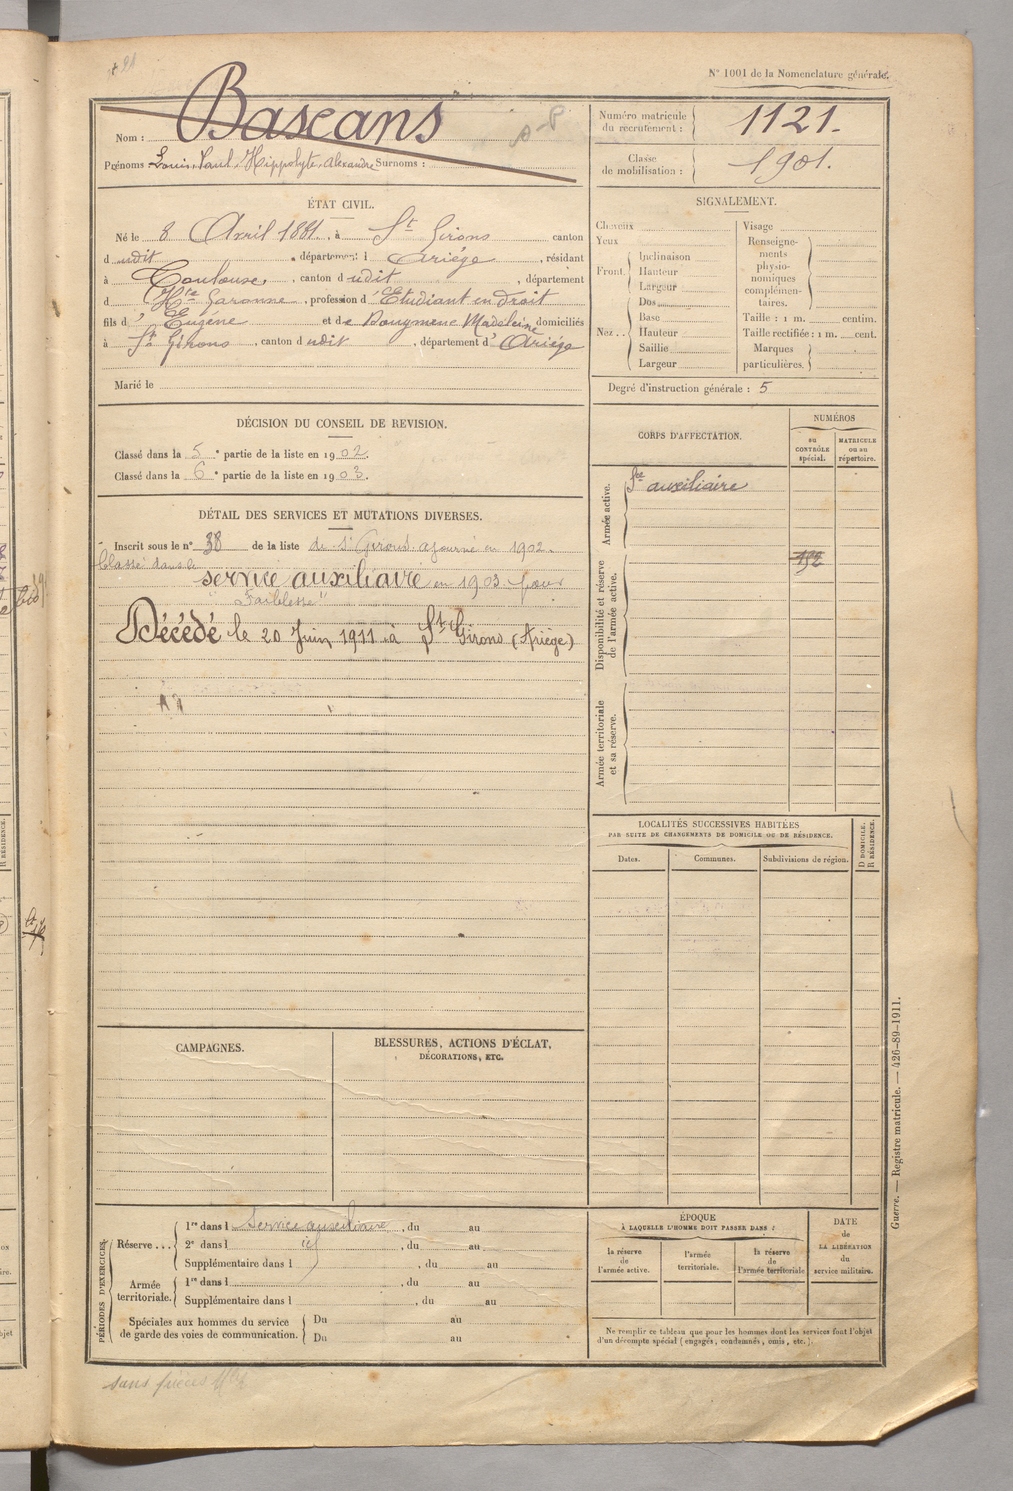 N° 1001 de la Nomenclature générale.
Nom : Bascans
A-P
Prénoms Louis, Paul, Hippolyte, Alexandre Surnoms :
Numéro matricule du recrutement : 1121.
Classe de mobilisation : 1901.
ÉTAT CIVIL.
Né le 8 Avril 1881, à St Girons canton
dudit, département d Ariège, résidant
à Toulouse, canton dudit, département
d Hte Garonne, profession d'Etudiant en Droit
fils d'Eugène et de Bouymene Madeleine domiciliés
à St Girons, canton dudit, département d'Ariège
Marié le
SIGNALEMENT.
Cheveux
Yeux
Front. Inclinaison
Hauteur
Largeur
Nez.. Dos
Base
Hauteur
Saillie
Largeur
Visage
Renseigne-
ments
physio-
nomiques
complémen-
taires.
Taille : 1 m. centim.
Taille rectifiée : 1 m. cent.
Marques
particulières.
Degré d'instruction générale : 5
DÉCISION DU CONSEIL DE REVISION.
Classé dans la 5e partie de la liste en 1902.
Classé dans la 6e partie de la liste en 1903.
DÉTAIL DES SERVICES ET MUTATIONS DIVERSES.
Inscrit sous le n° 38 de la liste de St Girons. ajourné en 1902.
Classé dans le
service auxiliaire en 1903 pour
"Faiblesse"
Décédé le 20 Juin 1911 à St Girons (Ariège)
CORPS D'AFFECTATION.
NUMÉROS
au
CONTRÔLE
spécial.
MATRICULE
ou au
répertoire.
Armée active.
Sce auxiliaire
Disponibilité et réserve
de l'armée active.
Armée territoriale
et sa réserve.
LOCALITÉS SUCCESSIVES HABITÉES
PAR SUITE DE CHANGEMENTS DE DOMICILE OU DE RÉSIDENCE.
Dates.
Communes.
Subdivisions de région.
D DOMICILE.
R RÉSIDENCE.
CAMPAGNES.
BLESSURES, ACTIONS D'ÉCLAT,
DÉCORATIONS, ETC.
PÉRIODES D'EXERCICES.
Réserve... 1re dans l Service auxiliaire, du au
2e dans l id, du au
Supplémentaire dans l , du au
Armée territoriale. 1re dans l , du au
Supplémentaire dans l , du au
Spéciales aux hommes du service
de garde des voies de communication.
Du au
Du au
ÉPOQUE
À LAQUELLE L'HOMME DOIT PASSER DANS :
la réserve
de
l'armée active.
l'armée
territoriale.
la réserve
de
l'armée territoriale
DATE
de
LA LIBÉRATION
du
service militaire.
Ne remplir ce tableau que pour les hommes dont les services font l'objet
d'un décompte spécial (engagés, condamnés, omis, etc.).
Guerre. — Registre matricule. — 426-89-1911.
sans pièces